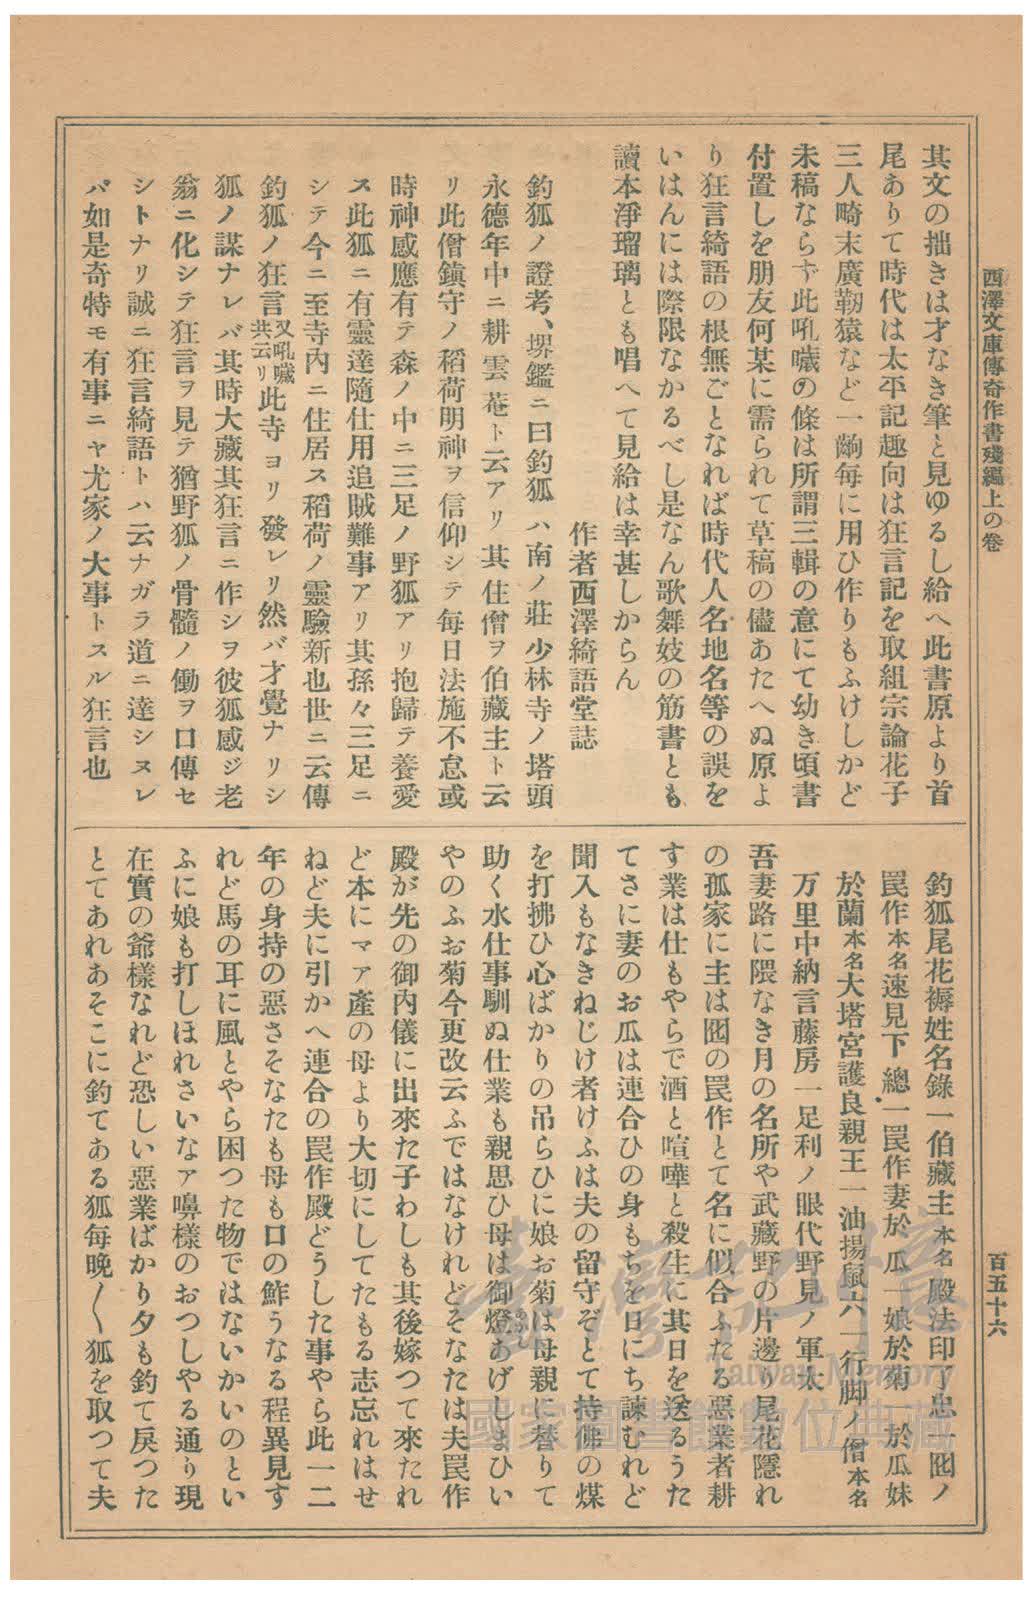 西澤文庫傳奇作書殘編上の卷
百五十六
其文の拙きは才なき筆と見ゆるし給へ此書原より首
尾ありて時代は太平記趣向は狂言記を取組宗論花子
三人畸末廣靭猿など一齣毎に用ひ作りもふけしかど
未稿ならず此吼噦の條は所謂三輯の意にて幼き頃書
付置しを朋友何某に需られて草稿の儘あたへぬ原よ
り狂言綺語の根無ごとなれば時代人名地名等の誤を
いはんには際限なかるべし是なん歌舞妓の筋書とも
讀本淨瑠璃とも唱へて見給は幸甚しからん
作者西澤綺語堂誌
釣狐ノ證考、堺鑑ニ曰釣狐ハ南ノ莊少林寺ノ塔頭
永德年中ニ耕雲菴ト云アリ其住僧ヲ伯藏主ト云
リ此僧鎭守ノ稻荷明神ヲ信仰シテ每日法施不怠或
時神感應有テ森ノ中ニ三足ノ野狐アリ抱歸テ養愛
ス此狐ニ有靈達隨仕用追賊難事アリ其孫々三足ニ
シテ今ニ至寺內ニ住居ス稻荷ノ靈驗新也世ニ云傳
釣狐ノ狂言又吼噦共云リ此寺ヨリ發レリ然バ才覺ナリシ
狐ノ謀ナレバ其時大藏其狂言ニ作シヲ彼狐感ジ老
翁ニ化シテ狂言ヲ見テ猶野狐ノ骨髓ノ働ヲ口傳セ
シトナリ誠ニ狂言綺語トハ云ナガラ道ニ達シヌレ
バ如是奇特モ有事ニヤ尤家ノ大事トスル狂言也
釣狐尾花褥姓名錄一伯藏主本名殿法印了忠一囮ノ
罠作本名速見下總一罠作妻於瓜一娘於菊一於瓜妹
於蘭本名大塔宮護良親王一油揚鼠六一行脚ノ僧本名
万里中納言藤房一足利ノ眼代野見ノ軍太
吾妻路に隈なき月の名所や武藏野の片邊り尾花隱れ
の孤家に主は囮の罠作とて名に似合ふたる惡業者耕
す業は仕もやらで酒と喧嘩と殺生に其日を送るうた
てさに妻のお瓜は連合ひの身もちを日にち諫むれど
聞入もなきねじけ者けふは夫の留守ぞとて持佛の煤
を打拂ひ心ばかりの吊らひに娘お菊は母親に替りて
助く水仕事馴ぬ仕業も親思ひ母は御燈あげしまひい
やのふお菊今更改云ふではなけれどそなたは夫罠作
殿が先の御內儀に出來た子わしも其後嫁つて來たれ
ど本にマア產の母より大切にしてたもる志忘れはせ
ねど夫に引かへ連合の罠作殿どうした事やら此一二
年の身持の惡さそなたも母も口の鮓うなる程異見す
れど馬の耳に風とやら困つた物ではないかいのとい
ふに娘も打しほれさいなア嚊樣のおつしやる通り現
在實の爺樣なれど恐しい惡業ばかり夕も釣て戾つた
とてあれあそこに釣てある狐每晚〱狐を取つて夫
臺灣記憶
Taiwan Memory
國家圖書館數位典藏